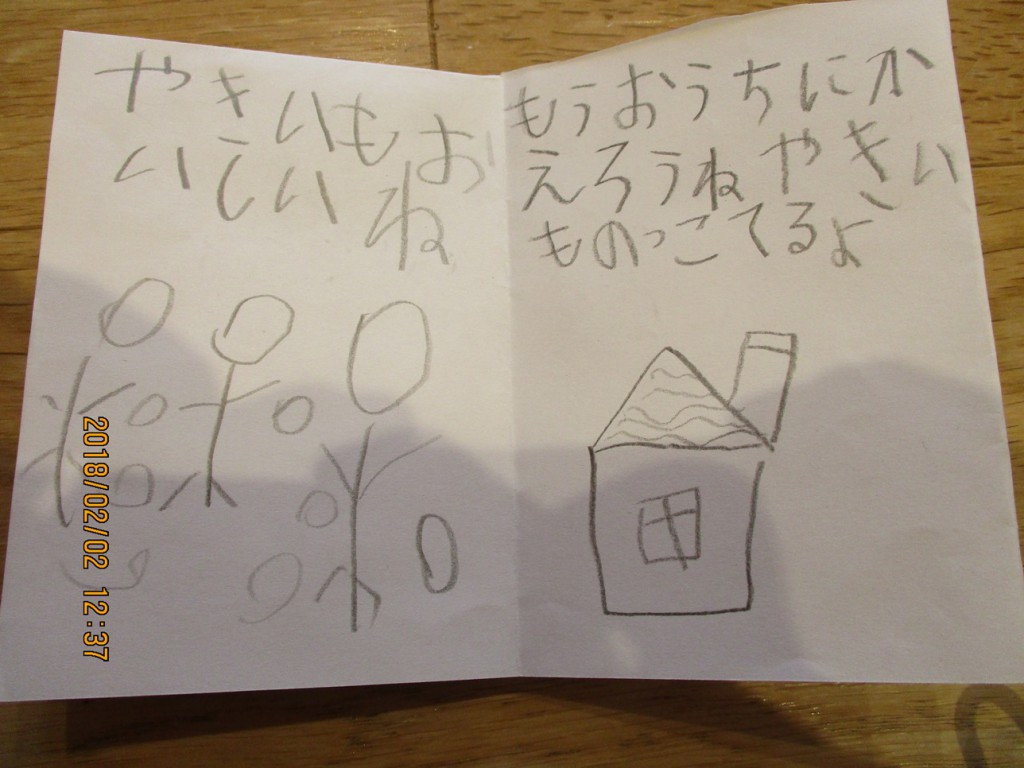 やきいもお
いしいね
もうおうちにか
えろうねやきい
ものこってるよ
2018/02/02 12:37